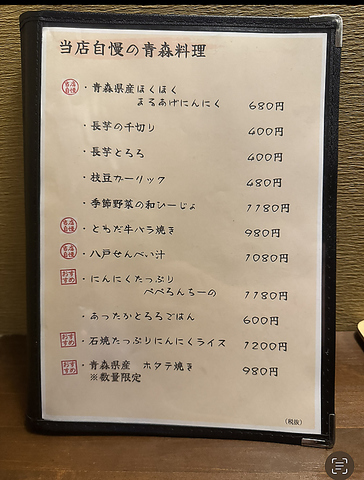 当店自慢の青森料理
当店自慢 ・青森県産ほくほく
まるあげにんにく 680円
・長芋の千切り 400円
・長芋とろろ 400円
・枝豆ガーリック 480円
・季節野菜の和ひーじょ 1180円
当店自慢 ・ともだ牛バラ焼き 980円
当店自慢 ・八戸せんべい汁 1080円
おすすめ ・にんにくたっぷり
ぺぺろんちーの 1180円
・あったかとろろごはん 600円
おすすめ ・石焼たっぷりにんにくライス 1200円
おすすめ ・青森県産 ホタテ焼き 980円
※数量限定
(税抜)